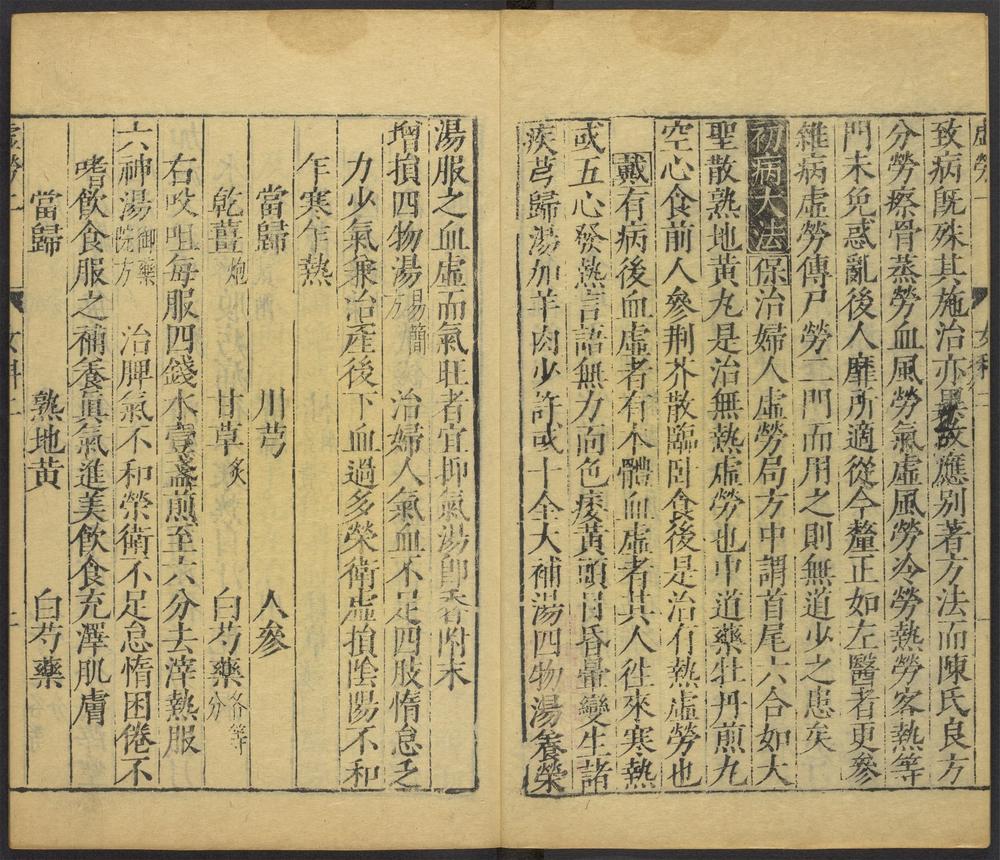 虛勞一 女科二 一
致病既殊其施治亦異故應別著方法而陳氏良方
分勞瘵骨蒸勞血風勞氣虛風勞冷勞熱勞客熱等
門未免惑亂後人靡所適從今釐正如左醫者更參
雜病虛勞傳尸勞二門而用之則無道少之患矣
初病大法保治婦人虛勞局方中謂首尾六合如大
聖散熟地黃丸是治無熱虛勞也中道藥牡丹煎丸
空心食前人參荆芥散臨卧食後是治有熱虛勞也
戴有病後血虛者有本體血虛者其人徃來寒熱
或五心發熱言語無力面色痿黃頭目昏暈變生諸
疾芎歸湯加羊肉少許或十全大補湯四物湯養榮
湯服之血虛而氣旺者宜抑氣湯即香附末
增損四物湯昜簡方 治婦人氣血不足四肢惰怠乏
力少氣兼治產後下血過多榮衛虛損陰陽不和
乍寒乍熱
當歸 川芎 人參
乾薑炮 甘草炙 白芍藥各等分
右㕮咀每服四錢水壹盞煎至六分去滓熱服
六神湯御藥院方 治脾氣不和榮衛不足怠惰困倦不
嗜飲食服之補養眞氣進美飲食充澤肌膚
當歸 熟地黃 白芍藥
虛勞一 女科二 二